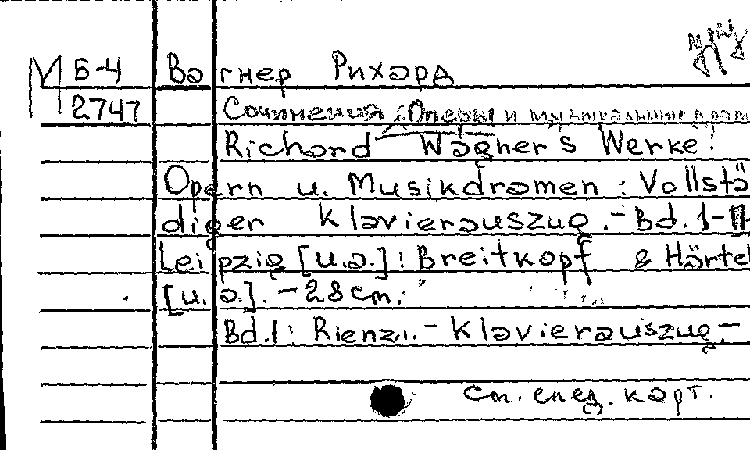 М Б-4 Вагнер Рихард
2747 Сочинения : Оперы и музыкальные драм
Richard Wagner's Werke :
Opern u. Musikdramen : Vollstä
diger Klavierauszug. - Bd. 1-11
Leipzig [u.a.] : Breitkopf & Härtel
[u.a.]. - 28 cm.
Bd.1 : Rienzi. - Klavierauszug. -
См. след. карт.